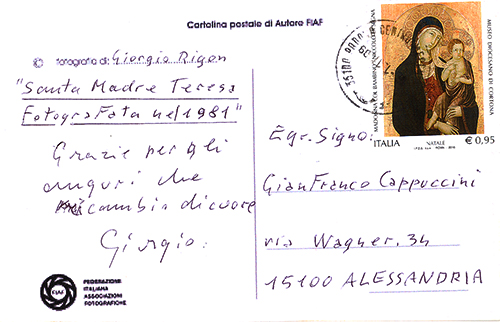 Cartolina postale di Autore FIAF
© fotografia di: Giorgio Rigon
"Santa Madre Teresa
Fotografata nel 1981"
Grazie per gli
auguri che
ricambio di cuore
Giorgio.
FIAF
FEDERAZIONE
ITALIANA
ASSOCIAZIONI
FOTOGRAFICHE
MUSEO DIOCESANO DI CORTONA
ITALIA
NATALE
€ 0,95
Egr. Signor
GianFranco Cappuccini
via Wagner, 34
15100 ALESSANDRIA